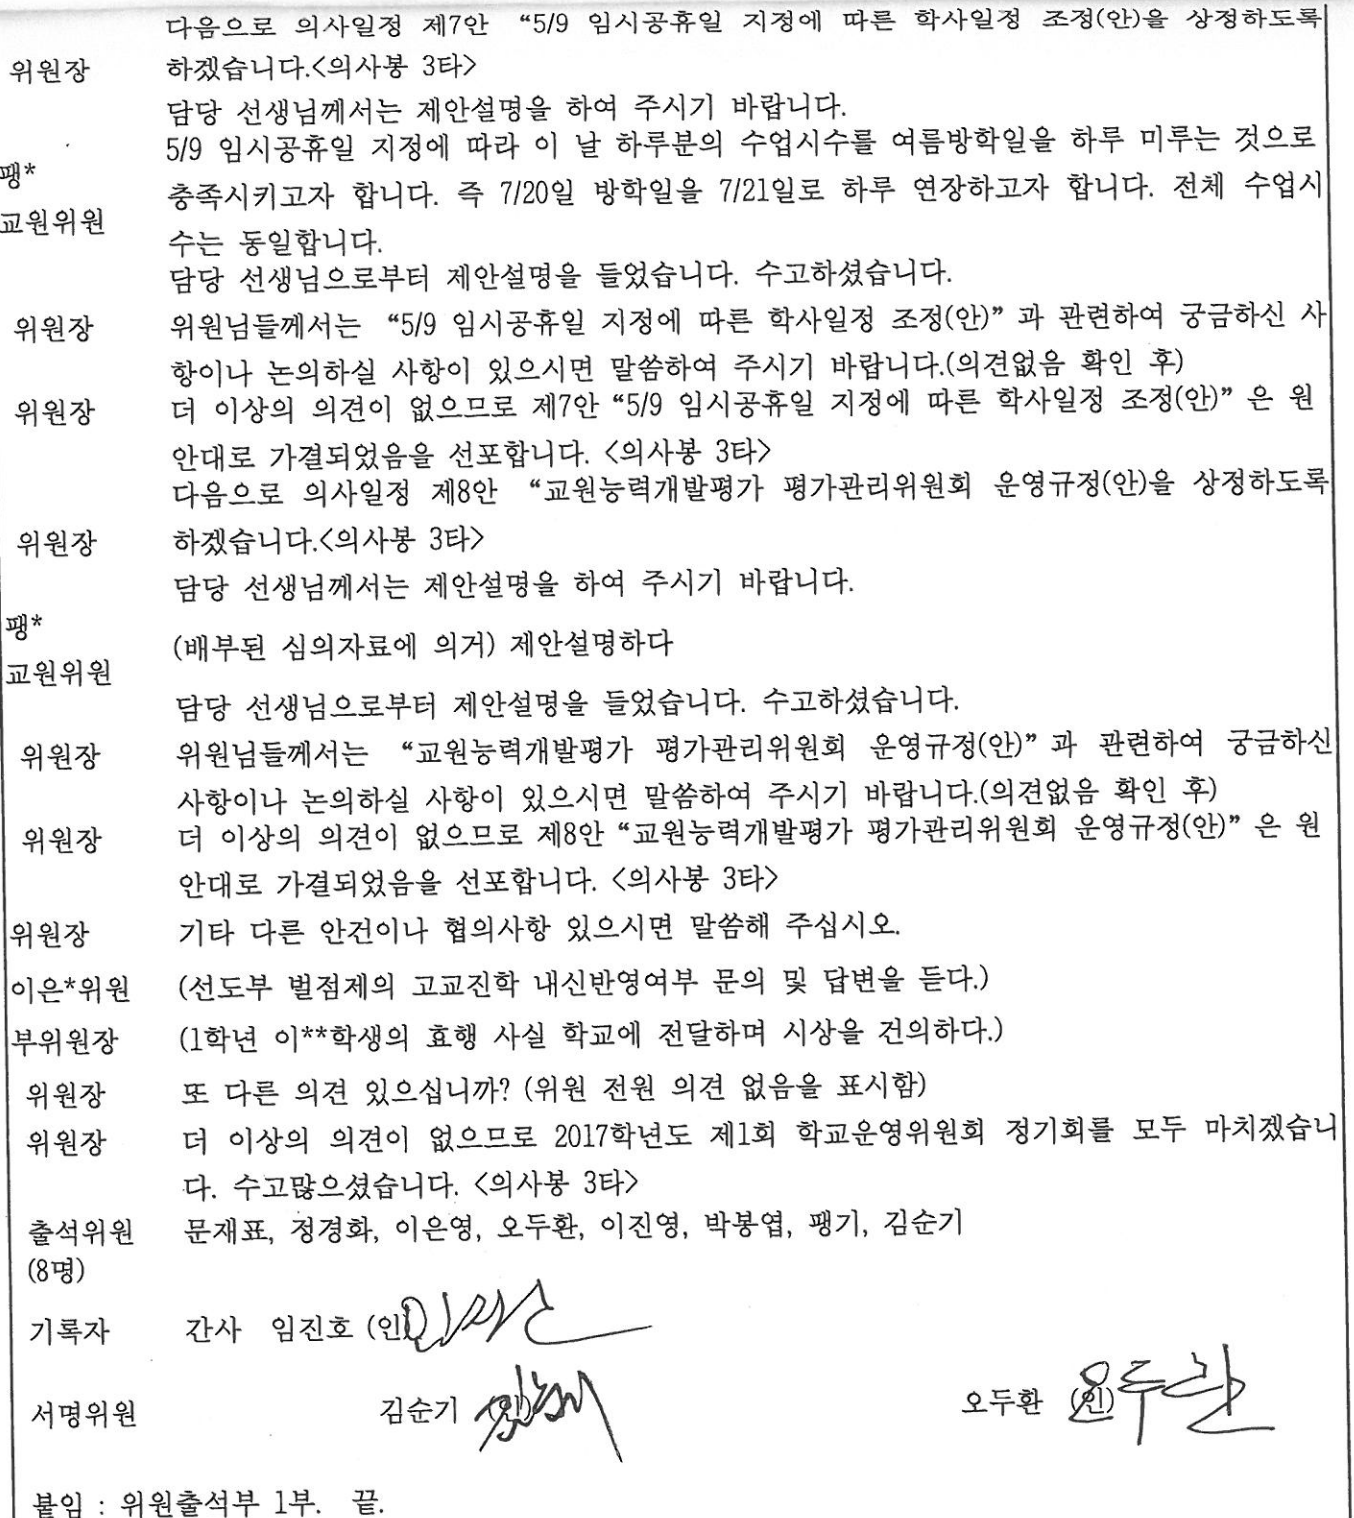 다음으로 의사일정 제7안 “5/9 임시공휴일 지정에 따른 학사일정 조정(안)을 상정하도록
위원장 하겠습니다.<의사봉 3타>
담당 선생님께서는 제안설명을 하여 주시기 바랍니다.
5/9 임시공휴일 지정에 따라 이 날 하루분의 수업시수를 여름방학일을 하루 미루는 것으로
팽*
충족시키고자 합니다. 즉 7/20일 방학일을 7/21일로 하루 연장하고자 합니다. 전체 수업시
교원위원
수는 동일합니다.
담당 선생님으로부터 제안설명을 들었습니다. 수고하셨습니다.
위원장 위원님들께서는 “5/9 임시공휴일 지정에 따른 학사일정 조정(안)” 과 관련하여 궁금하신 사
항이나 논의하실 사항이 있으시면 말씀하여 주시기 바랍니다.(의견없음 확인 후)
위원장 더 이상의 의견이 없으므로 제7안 “5/9 임시공휴일 지정에 따른 학사일정 조정(안)” 은 원
안대로 가결되었음을 선포합니다. <의사봉 3타>
다음으로 의사일정 제8안 “교원능력개발평가 평가관리위원회 운영규정(안)을 상정하도록
위원장 하겠습니다.<의사봉 3타>
담당 선생님께서는 제안설명을 하여 주시기 바랍니다.
팽*
(배부된 심의자료에 의거) 제안설명하다
교원위원
담당 선생님으로부터 제안설명을 들었습니다. 수고하셨습니다.
위원장 위원님들께서는 “교원능력개발평가 평가관리위원회 운영규정(안)” 과 관련하여 궁금하신
사항이나 논의하실 사항이 있으시면 말씀하여 주시기 바랍니다.(의견없음 확인 후)
위원장 더 이상의 의견이 없으므로 제8안 “교원능력개발평가 평가관리위원회 운영규정(안)” 은 원
안대로 가결되었음을 선포합니다. <의사봉 3타>
위원장 기타 다른 안건이나 협의사항 있으시면 말씀해 주십시오.
이은*위원 (선도부 벌점제의 고교진학 내신반영여부 문의 및 답변을 듣다.)
부위원장 (1학년 이**학생의 효행 사실 학교에 전달하며 시상을 건의하다.)
위원장 또 다른 의견 있으십니까? (위원 전원 의견 없음을 표시함)
위원장 더 이상의 의견이 없으므로 2017학년도 제1회 학교운영위원회 정기회를 모두 마치겠습니
다. 수고많으셨습니다. <의사봉 3타>
출석위원 문재표, 정경화, 이은영, 오두환, 이진영, 박봉엽, 팽기, 김순기
(8명)
기록자 간사 임진호 (인)
서명위원 김순기 (인) 오두환 (인) 오두환
붙임 : 위원출석부 1부. 끝.